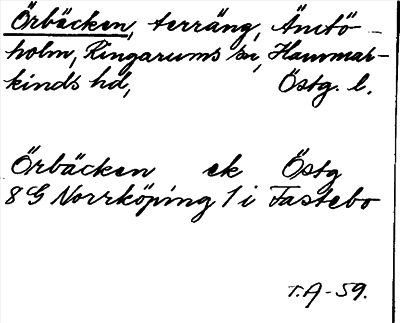 Örbäcken, terräng, Åmtö-
holm, Ringarums sn, Hammar-
kinds hd, Östg. l.
Örbäcken ek Östg
8G Norrköping 1 i Fastebo
T.A-59.